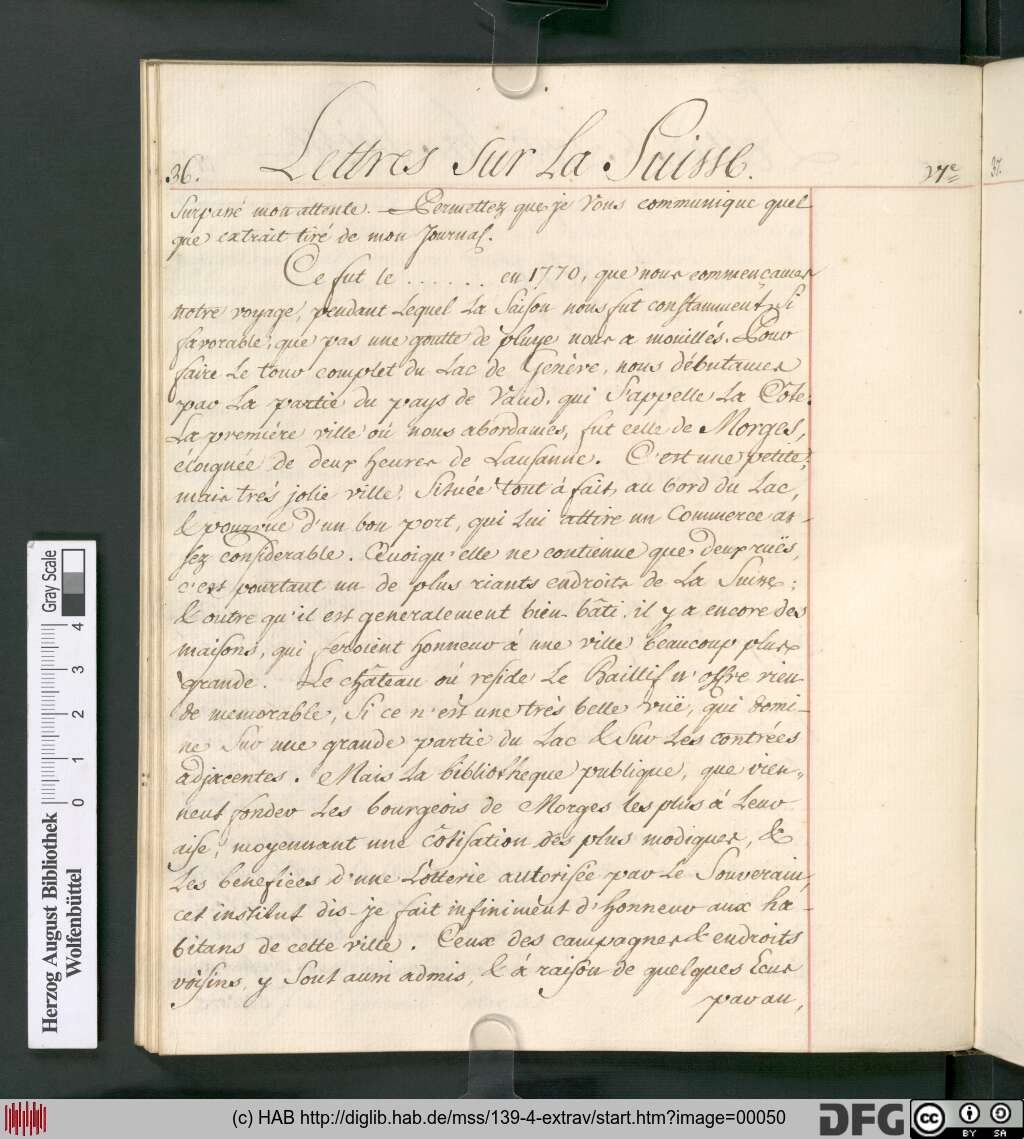 36. Lettres sur la Suisse. 17e
37.
surpassé mon attente. Permettez que je vous communique quel
que extrait tiré de mon Journal.
Ce fut le ...... en 1770, que nous commençames
notre voyage, pendant lequel la Saison nous fut constamment si
favorable, que pas une goutte de pluye nous a mouillés. Pour
faire le tour complet du Lac de Genève, nous débutames
par la partie du pays de Vaud, qui s'appelle la Côte.
La premiére ville où nous abordames, fut celle de Morges,
éloignée de deux heures de Lausanne. C'est une petite,
mais trés jolie ville, située tout á fait au bord du Lac,
& pourvue d'un bon port, qui lui attire un Commerce as-
sez considerable. Quoiqu'elle ne contienne que deux ruës,
c'est pourtant un de plus riants endroits de la Suisse;
& outre qu'il est generalement bien bâti, il y a encore des
maisons, qui feroient honneur á une ville beaucoup plus
grande. Le château où reside le Baillif n'offre rien
de memorable, si ce n'est une très belle vuë, qui domi-
ne sur une grande partie du Lac & sur les contrées
adjacentes. Mais la bibliotheque publique, que vien-
nent fonder les bourgeois de Morges les plus á leur
aise, moyennant une côtisation des plus modiques, &
les benefices d'une Lotterie autorisée par le Souverain,
cet institut dis-je fait infiniment d'honneur aux ha-
bitans de cette ville. Ceux des campagnes & endroits
voisins, y sont aussi admis, & á raison de quelques Ecus
par an,
Herzog August Bibliothek
Wolfenbüttel
0 1 2 3 4
Gray Scale
(c) HAB http://diglib.hab.de/mss/139-4-extrav/start.htm?image=00050
DFG
cc BY SA